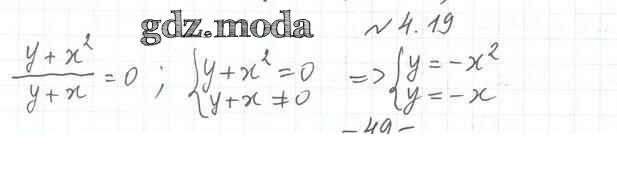 gdz.moda
№ 4.19
(y + x²)/(y + x) = 0 ; { y + x² = 0 ; y + x ≠ 0 => { y = -x² ; y = -x
- 49 -